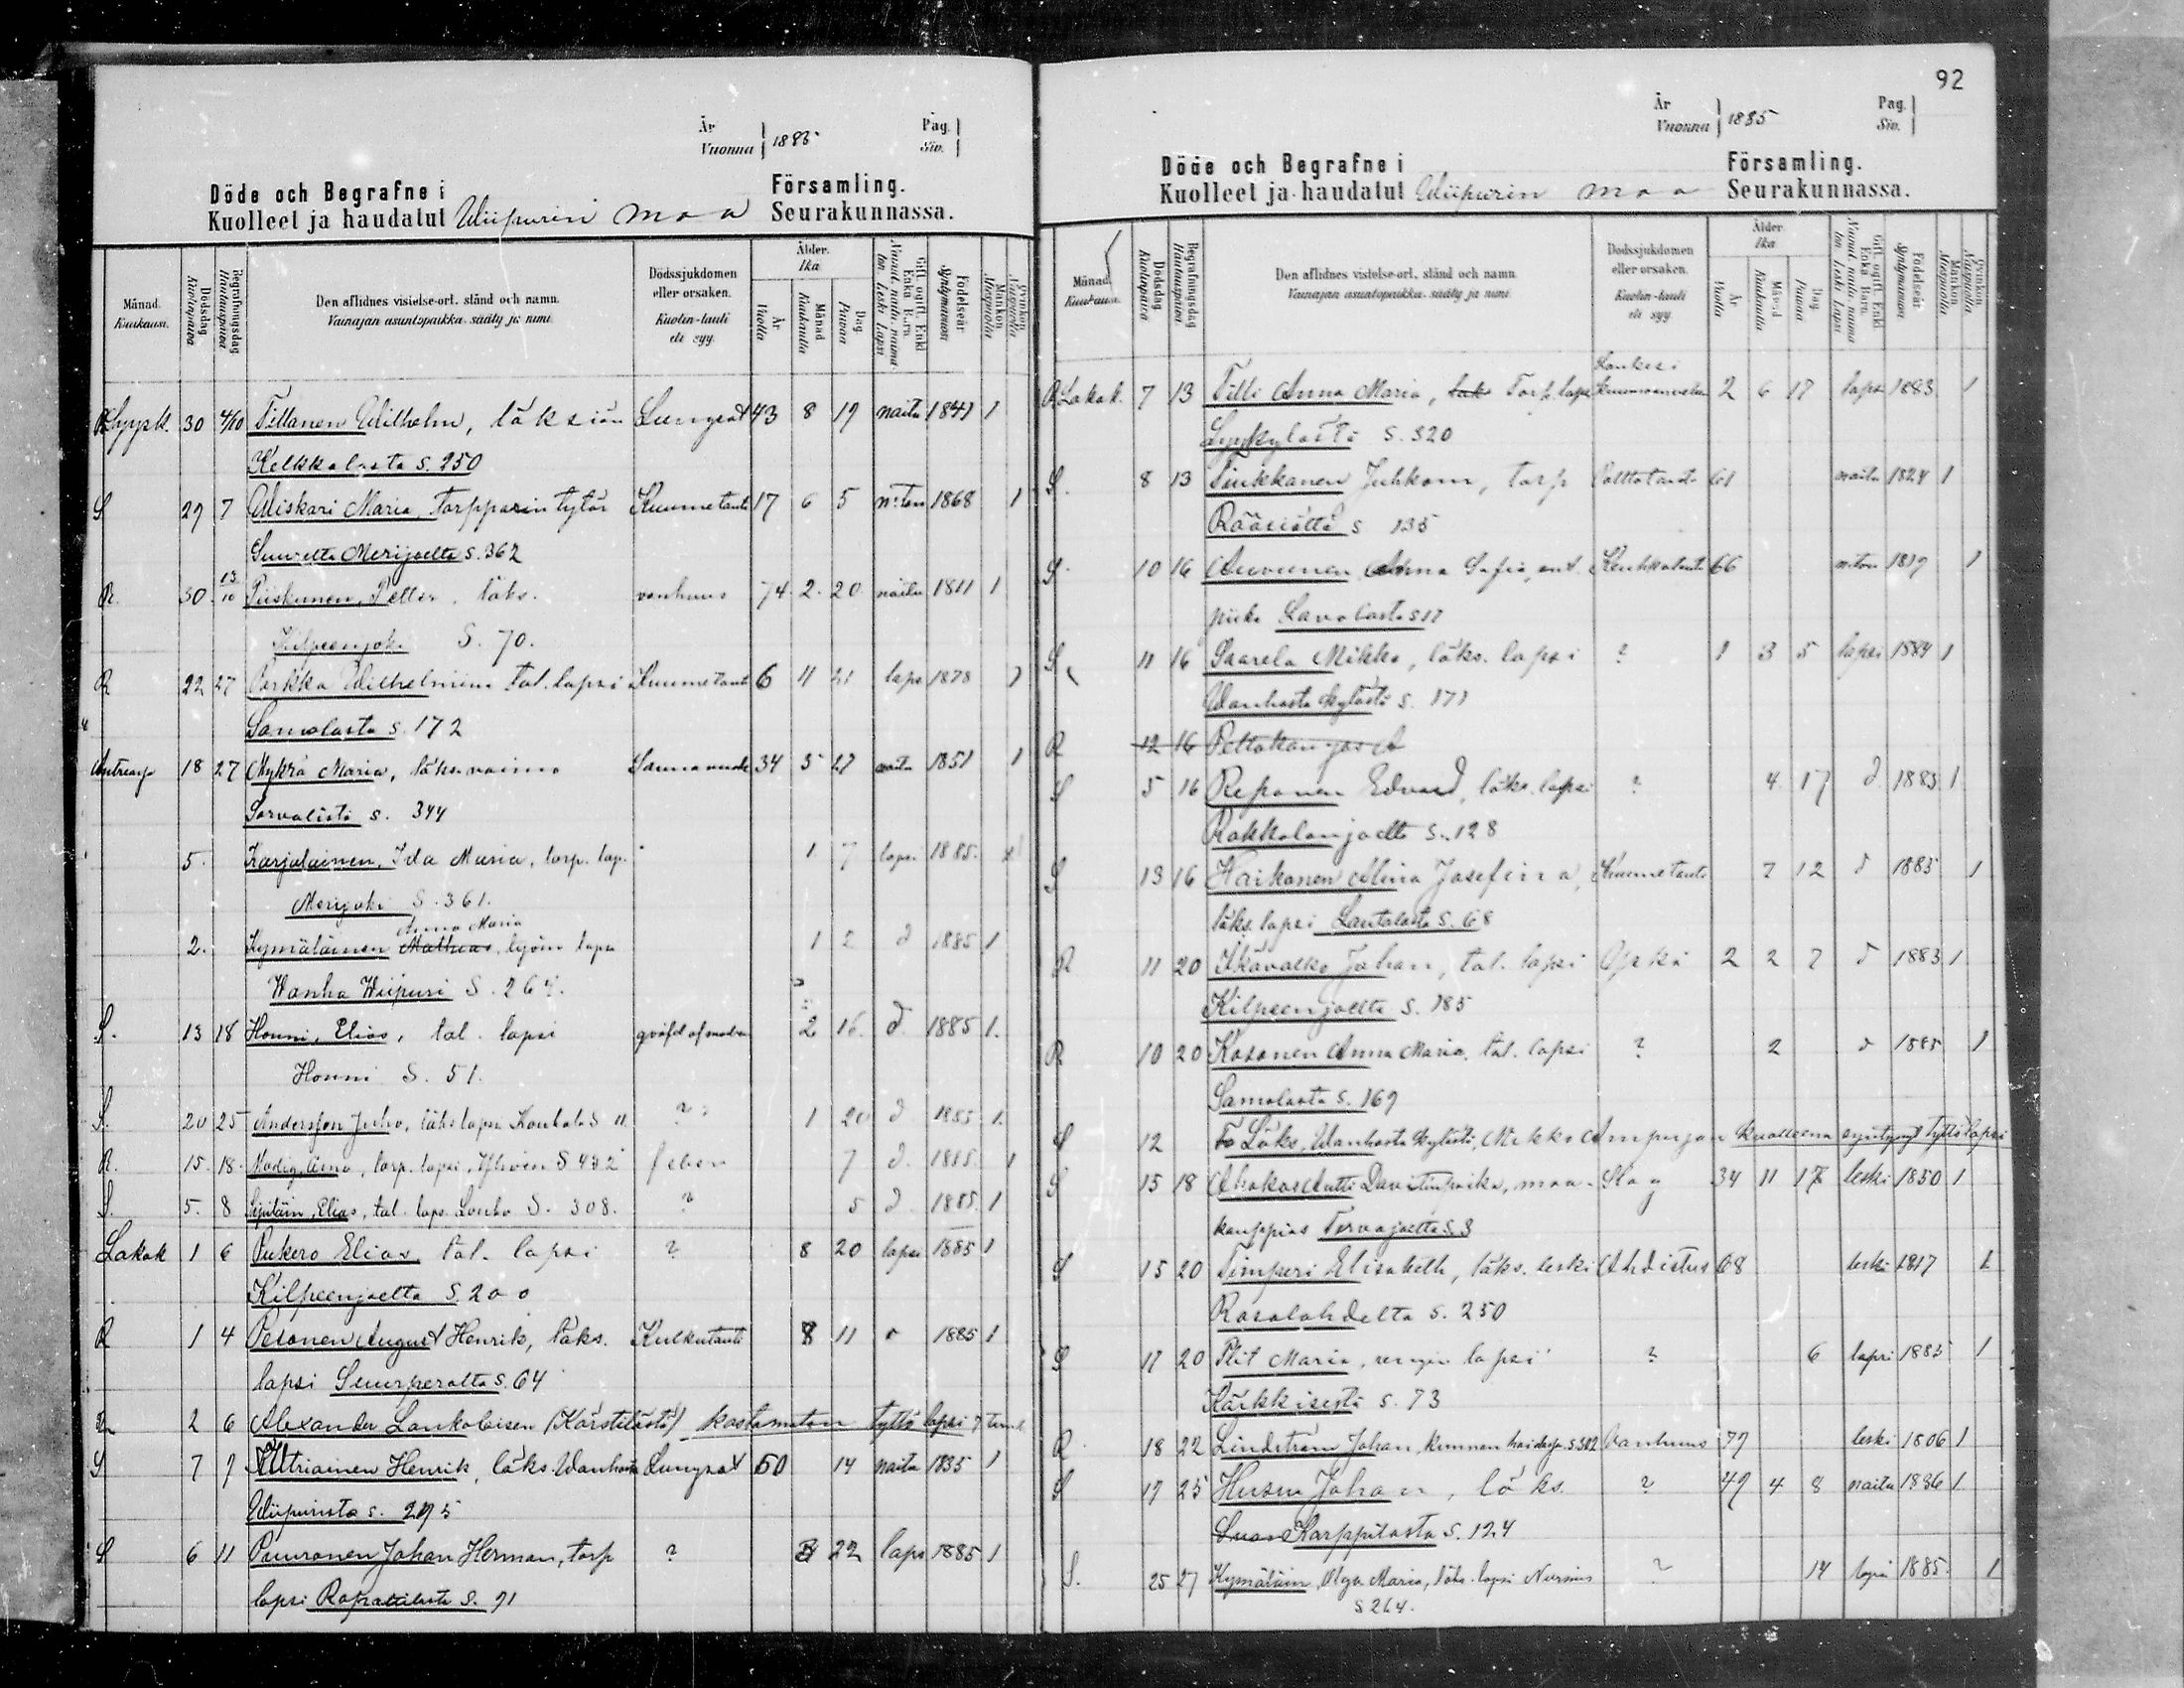 År
Vuonna 1885
Pag.
Siv.
Döde och Begrafne i Församling.
Kuolleet ja haudatut Wiipurin maa Seurakunnassa.
Månad. Kuukausi.
Dödsdag Kuolinpäivä
Begrafningsdag Hautauspäivä
Den aflidnes vistelse-ort, stånd och namn.
Vainajan asuntopaikka, sääty ja nimi.
Dödssjukdomen eller orsaken.
Kuolin-tauti eli syy.
Ålder. Ikä.
År Vuotta
Månad Kuukautta
Dag. Päivää
Födelseår Syntymävuosi
Mankön Miespuolia
Qvinkön Vaispuolia
Syysk. 30 4/10 Tillanen Wilhelm, läksiän 43 8 19 naitu 1841 1
Kelkkalasta s. 250
S 29 7 Miskari Maria, torpparin tytär Kuumetauti 17 6 5 1868 1
Suurelta Merijoelta s. 362
R. 30 13/10 Piiskunen, Petter, läks. vanhuus 74 2 20 naitu 1811 1
Kilpeenjoki S. 70.
R 22 27 Parkka Wilhelmiina tal. lapsi Kuumetauti 6 11 21 laps 1878 1
Samolasta s. 172
18 27 Nykrä Maria, läks. vaimo 34 5 27 naitu 1851 1
Sorvalista s. 344
5. Karjalainen, Ida Maria, torp. lap. 1 7 lapsi 1885.
Merijoki S. 361.
Anna Maria
2. Kymäläinen Mathias, lapsi 1 2 d 1885 1
Wanha Wiipuri S. 264.
S. 13 18 Honni, Elias, tal. lapsi 2 16. d 1885 1.
Honni S. 51.
S. 20 25 Andersson Juho, läks lapsi Konkala S 11 ? 1 20 d 1885 1.
R. 15. 18. Modig, torp. lapsi, S 432 feber 7 d. 1885. 1
S. 5. 8 Elias, tal. laps. S. 308. ? 5 d 1885. 1
Lokak 1 6 Pukero Elias tal. lapsi ? 8 20 lapsi 1885 1
Kilpeenjoelta S. 200
R 1 4 Pesonen August Henrik, läks. Kulkutauti 8 11 1885 1
lapsi Suurperolta s. 64
R 2 6 Alexander Lankoloisen (Kärstilästä) kastamaton tyttö lapsi
S 7 9 Kiltriainen Henrik, läks. Wanhasta 50 14 naitu 1835 1
Wiipurista s. 295
S 6 11 Puuronen Johan Herman, torp ? 3 22 laps 1885 1
lapsi s. 91
92
År
Vuonna 1885
Pag.
Siv.
Döde och Begrafne i Församling.
Kuolleet ja haudatut Wiipurin maa Seurakunnassa.
Månad. Kuukausi.
Dödsdag Kuolinpäivä
Begrafningsdag Hautauspäivä
Den aflidnes vistelse-ort, stånd och namn.
Vainajan asuntopaikka, sääty ja nimi.
Dödssjukdomen eller orsaken.
Kuolin-tauti eli syy.
Ålder. Ikä.
År Vuotta
Månad Kuukautta
Dag. Päivää
Födelseår Syntymävuosi
Mankön Miespuolia
Qvinkön Vaispuolia
R Lokak. 7 13 Tilli Anna Maria, Torp. lapsi 2 6 17 lapsi 1883 1
Lyykylästä s. 320
S. 8 13 Tiukkanen Juhkom, torp Polttotauti 61 naitu 1824 1
Rääsiältä s 135
S 10 16 Auvinen Anna Sofia, ent. Keuhkotauti 66 1819 1
piika Lavolasta s 17
S 11 16 Saarela Mikko, läks. lapsi ? 1 3 5 lapsi 1884 1
Wanhasta kylästä s. 171
R 12 16 Peltokangas A
S 5 16 Reponen Edvard, läks. lapsi ? 4 17 d 1885 1.
Rakkolanjoelta s. 128
S 13 16 Haikonen Alina Josefiina, Kuumetauti 7 12 d 1885 1
läks. lapsi Lautalasta s. 68
R 11 20 Ikävalko Johan, tal. lapsi 2 2 7 d 1883 1
Kilpeenjoelta s. 185
R 10 20 Kosonen Anna Maria, tal. lapsi ? 2 d 1885 1
Samolasta s. 169
S 12 Läks. Wanhasta kylästä, Mikko Ampujan kuolleena syntynyt tyttölapsi
S 15 18 Ahokas Antti Davitinpoika, maa- Slag 34 11 17 leski 1850 1
kauppias Tervajoelta s. 3
S 15 20 Timperi Elisabeth, läks. leski Ahdistus 68 leski 1817 1
Rasalahdelta s. 250
S 17 20 Plit Maria, rengin lapsi ? 6 lapsi 1885 1
Kärkkisestä s. 73
R 18 22 Lindström Johan, kunnan hoidoja s. 382 Vanhuus 79 leski 1806 1
S 17 25 Husu Johan, läks. ? 49 4 8 naitu 1836 1
Karppilasta s. 124
S. 25 27 Kymäläin, Olga Maria, läks. lapsi Nurmis ? 14 lapsi 1885. 1
s 264.